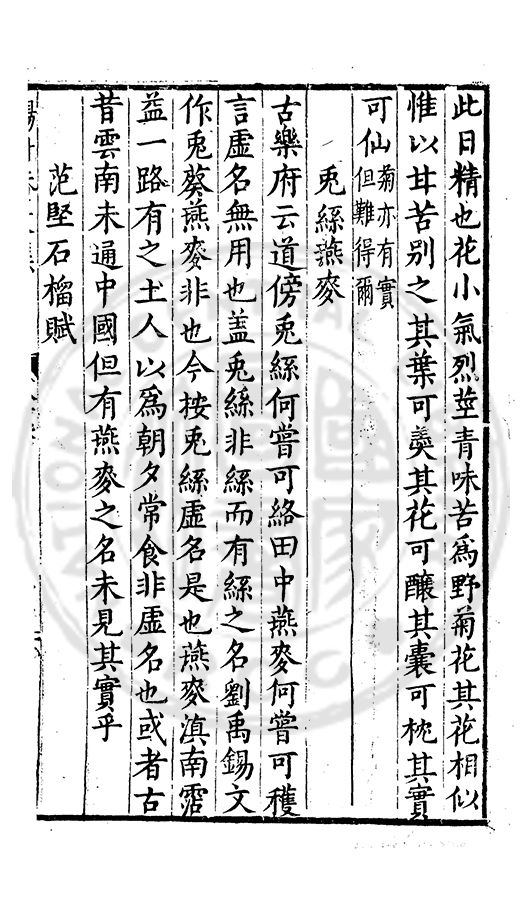 此日精也花小氣烈莖青味苦爲野菊花其花相似
惟以甘苦別之其葉可羮其花可釀其囊可枕其實
可仙菊亦有實但難得爾
兎絲燕麥
古樂府云道傍兎絲何嘗可絡田中燕麥何嘗可穫
言虛名無用也盖兎絲非絲而有絲之名劉禹錫文
作兎葵燕麥非也今按兎絲虛名是也燕麥滇南霑
益一路有之土人以爲朝夕常食非虛名也或者古
昔雲南未通中國但有燕麥之名未見其實乎
范堅石榴賦